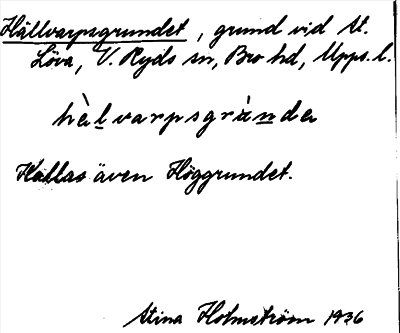 Hällvarpsgrundet, grund vid St.
Löva, V. Ryds sn, Bro hd, Upps. l.
hὰlvarpsgrὰnda
Kallas även Höggrundet.
Stina Holmström 1936